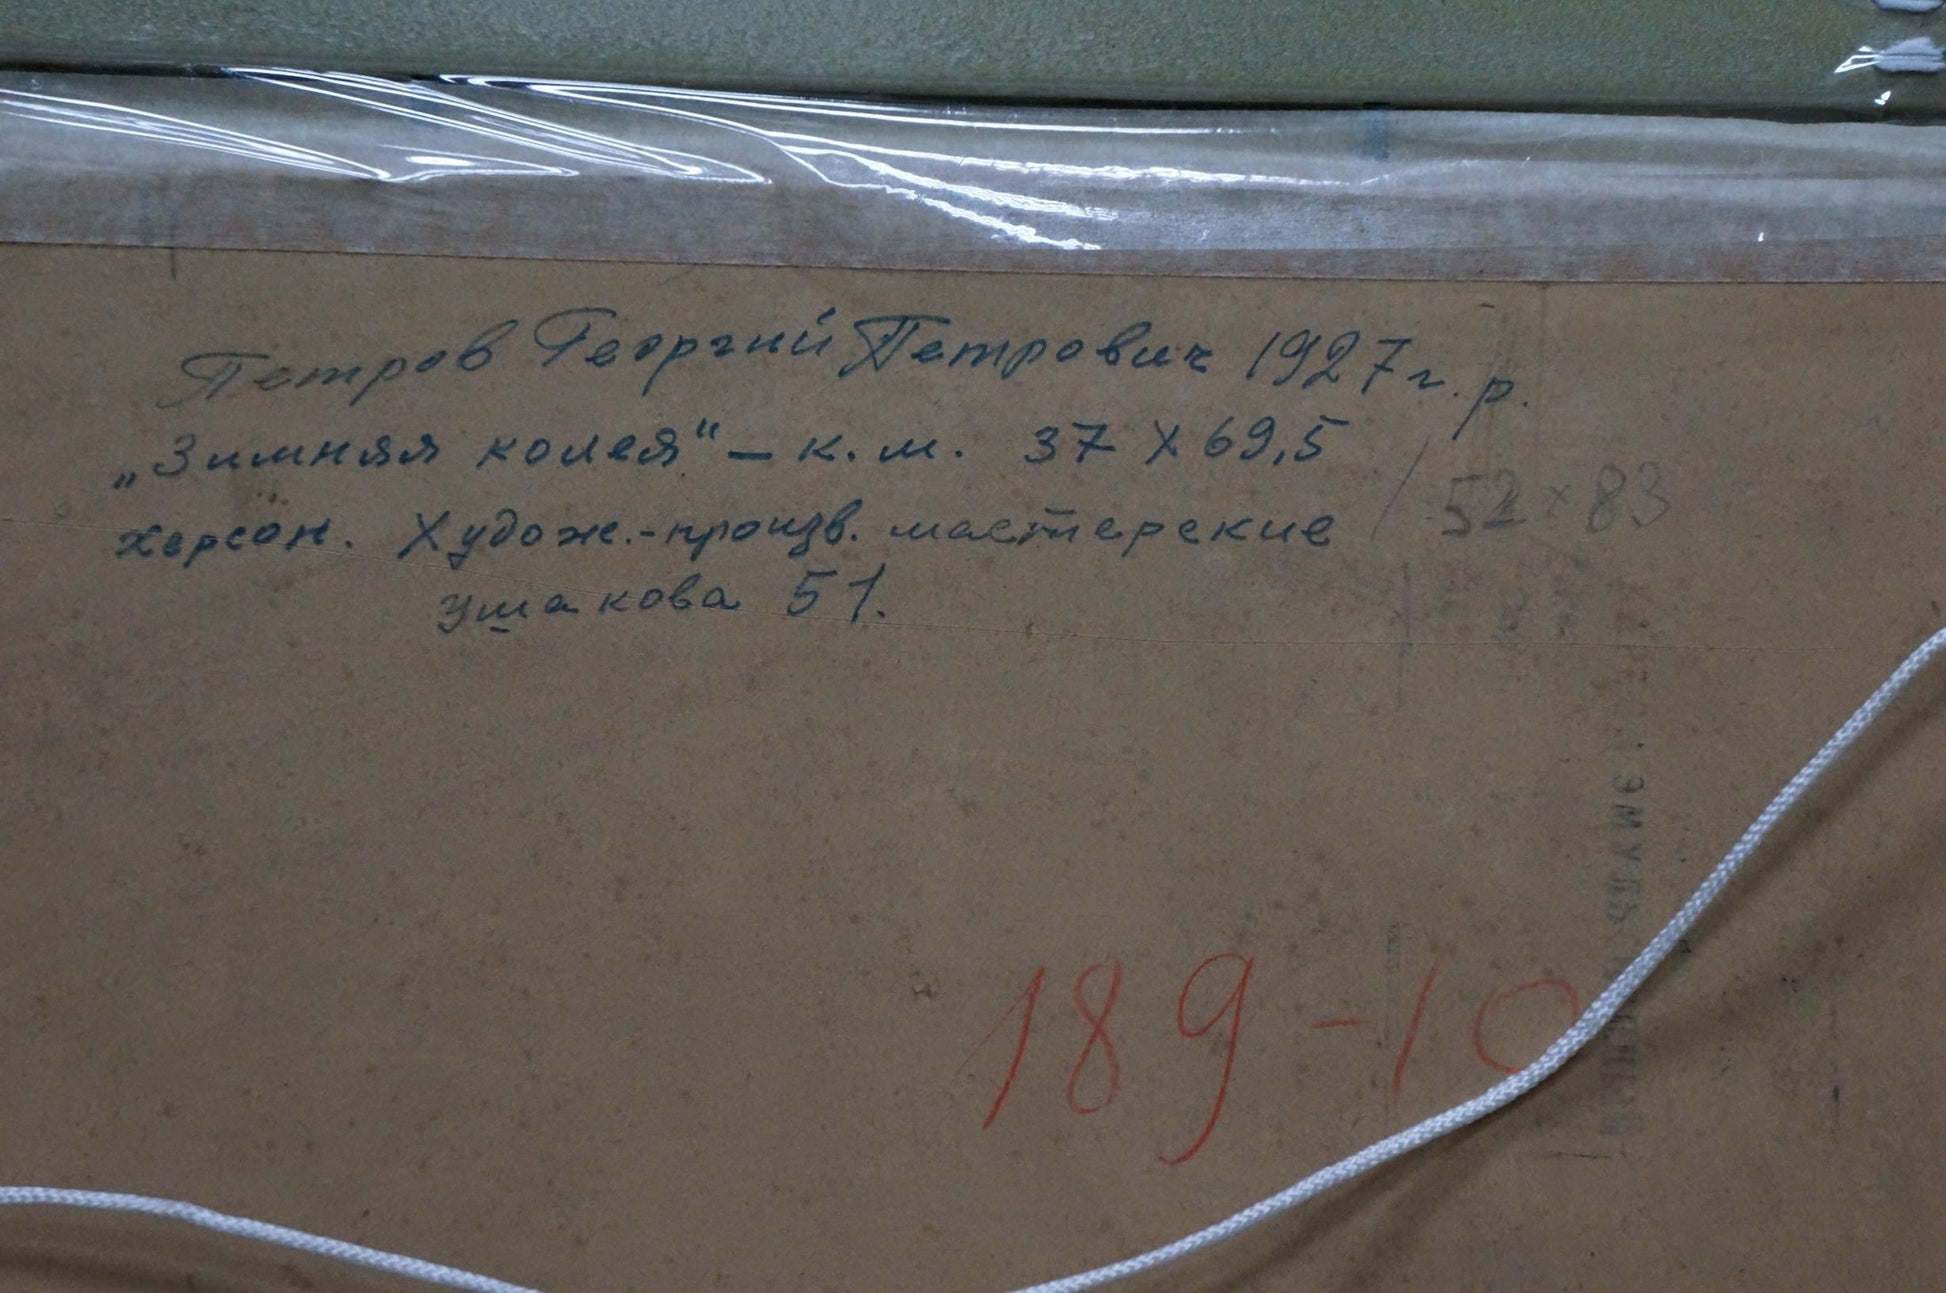 Петров Георгий Петрович 1927 г. р.
„Зимняя колея" – к. м. 37 X 69,5
52 x 83
Херсон. Худож.-произв. мастерские
Ушакова 51.
189 - 10